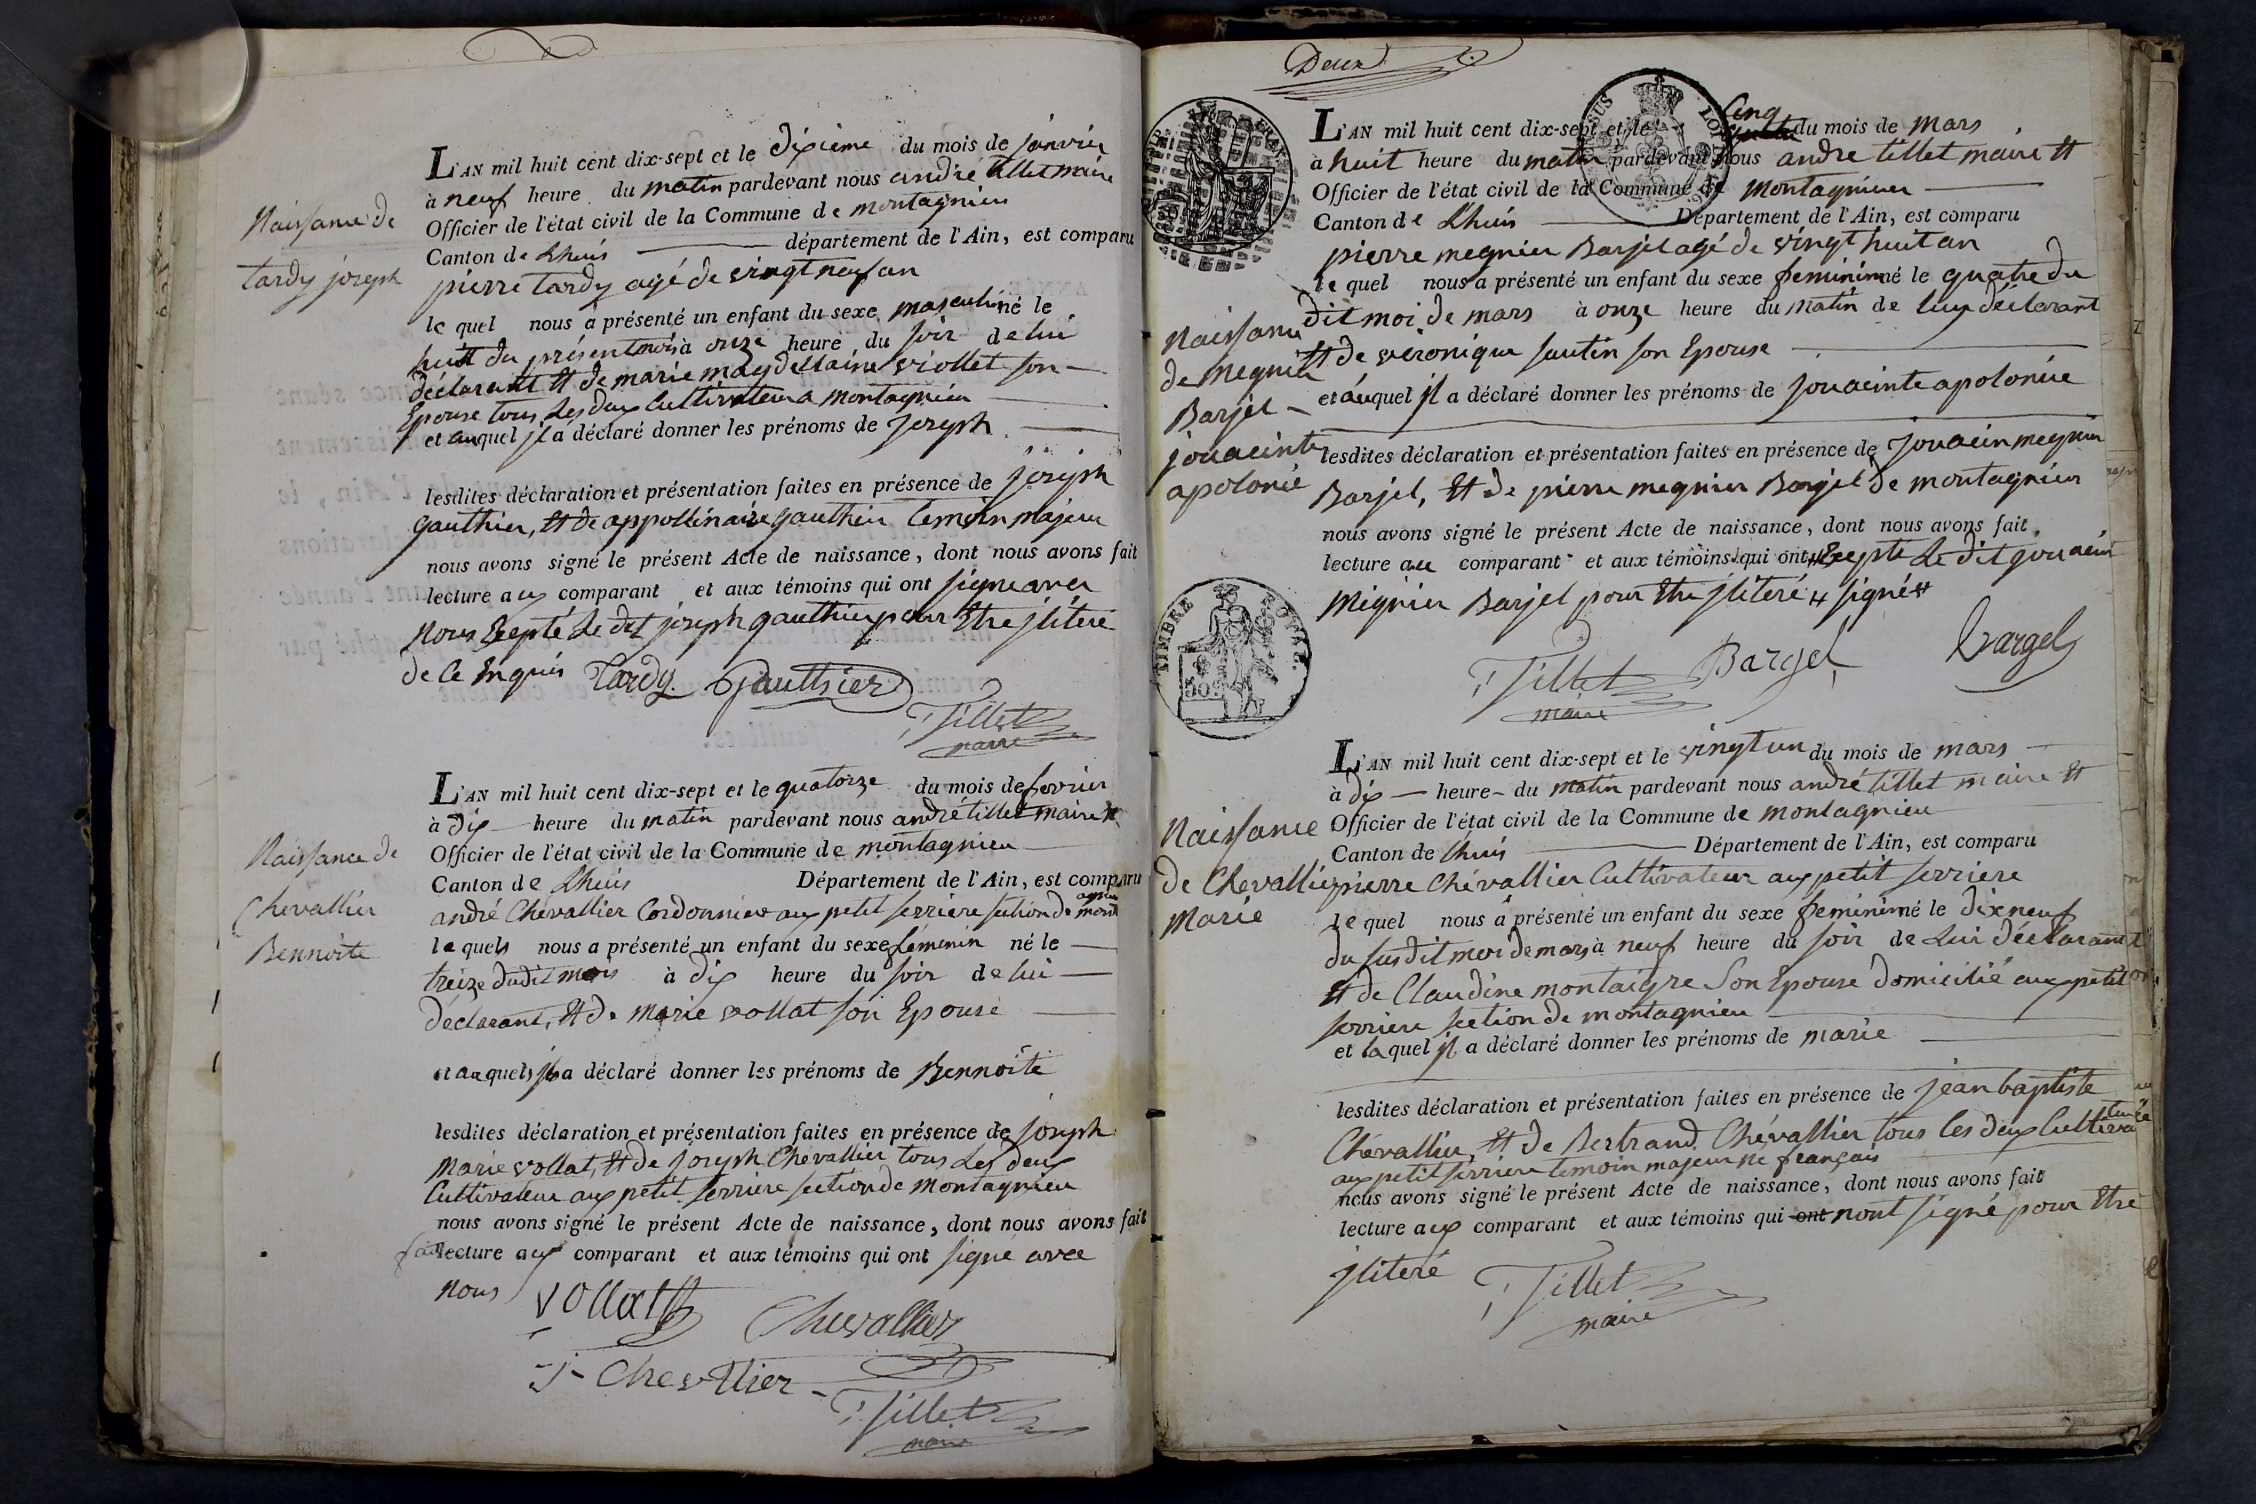 Naissance de
tardy joseph
L'AN mil huit cent dix-sept et le dixieme du mois de janvier
à neuf heure du matin pardevant nous andré tillet maire
Officier de l'état civil de la Commune de montagnieu
Canton de Lhuis département de l'Ain, est comparu
pierre tardy agé de vingt neuf an
le quel nous a présenté un enfant du sexe masculin né le
huit du présent mois à onze heure du soir de lui
déclarant Et de marie magdellaine viollet son
Epouse tous Les deux Cultivateur a montagnieu
et auquel jl a déclaré donner les prénoms de joseph
lesdites déclaration et présentation faites en présence de joseph
gauthier, Et de appollinaire gauthier temoin majeur
nous avons signé le présent Acte de naissance, dont nous avons fait
lecture aux comparant et aux témoins qui ont signe avec
nous Eepté Le dit joseph gauthier pour Etre jlitéré
de Ce Enquis Tardy Gauthier
Tillet
maire
Naissance de
Chevallier
Bennoite
L'AN mil huit cent dix-sept et le quatorze du mois de fevrier
à dix heure du matin pardevant nous andré tillet maire Et
Officier de l'état civil de la Commune de montagnieu
Canton de Lhuis Département de l'Ain, est comparu
andré Chevallier Cordonnier aux petit serriere section de montagnieu
le quel nous a présenté un enfant du sexe féminin né le
treize dudit mois à dix heure du soir de lui
déclarant, Et de Marie vollat son Epouse
et auquel jl a déclaré donner les prénoms de Bennoite
lesdites déclaration et présentation faites en présence de joseph
Marie vollat, Et de joseph Chevallier tous Les deux
Cultivateur aux petit serriere section de Montagnieu
nous avons signé le présent Acte de naissance, dont nous avons fait
lecture aux comparant et aux témoins qui ont signé avec
nous vollat
Chevallier
j Chevallier
Tillet
maire
Deux
L'AN mil huit cent dix-sept et le Cinq du mois de Mars
à huit heure du matin pardevant nous andre tillet maire Et
Officier de l'état civil de la Commune de Montagnieu
Canton de Lhuis Département de l'Ain, est comparu
pierre megnier Barjel agé de vingt huit an
le quel nous a présenté un enfant du sexe feminin né le quatre du
dit moi de mars à onze heure du matin de luy déclarant
Et de véronique sautin son Epouse
et auquel jl a déclaré donner les prénoms de jouacinte apolonie
Naissance
de Megnier
Barjel
jouacinte
apolonie
lesdites déclaration et présentation faites en présence de jouacin megnier
Barjel, Et de pierre megnier Barjel de montagnieu
nous avons signé le présent Acte de naissance, dont nous avons fait
lecture au comparant et aux témoins qui ont Exepte Le dit jouacin
Megnier Barjel pour Etre jliteré signé
TIMBRE ROYAL
50c
Tillet Bargel Bargel
maire
L'AN mil huit cent dix-sept et le vingt un du mois de mars
à dix heure du matin pardevant nous andré tillet maire Et
Officier de l'état civil de la Commune de montagnieu
Canton de Lhuis Département de l'Ain, est comparu
pierre Chévallier Cultivateur aux petit serriere
le quel nous a présenté un enfant du sexe feminin né le dixneuf
du susdit moi de mars à neuf heure du soir de Lui déclarant
Et de Claudine montaigre Son Epouse domicilié aux petit
serriere section de montagnieu
et laquel jl a déclaré donner les prénoms de marie
Naissance
de Chevallier
Marie
lesdites déclaration et présentation faites en présence de jean baptiste
Chévallier, Et de Bertrand Chévallier tous les deux Cultivateur
aux petit serriere temoin majeur ne français
nous avons signé le présent Acte de naissance, dont nous avons fait
lecture aux comparant et aux témoins qui ont nont signé pour Etre
jliteré
Tillet
maire